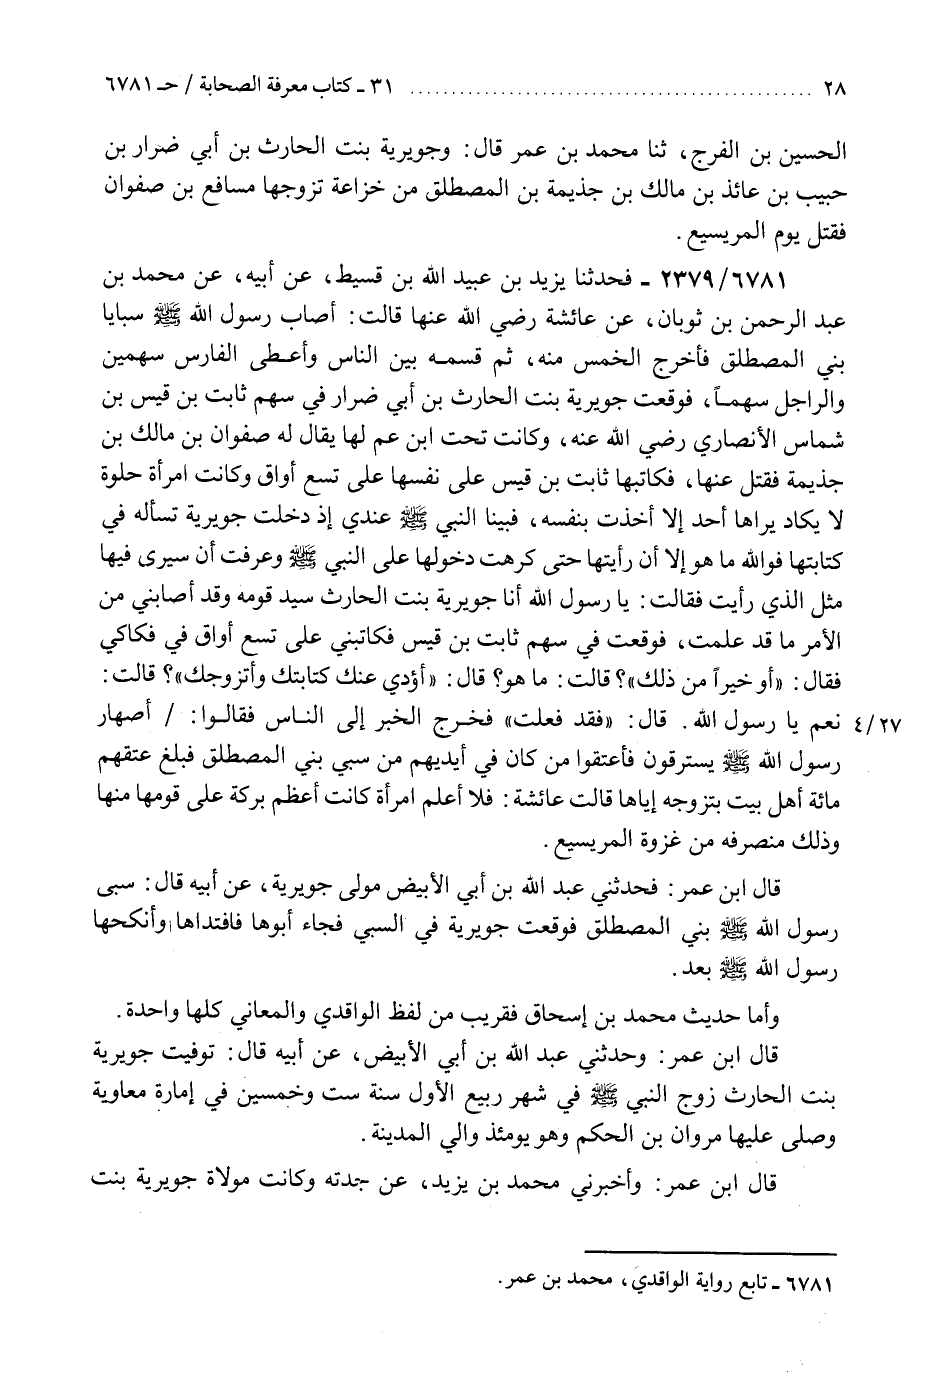 ٢٨ ................................................ ٣١ ـ كتاب معرفة الصحابة / حـ ٦٧٨١
الحسين بن الفرج، ثنا محمد بن عمر قال: وجويرية بنت الحارث بن أبي ضرار بن
حبيب بن عائذ بن مالك بن جذيمة بن المصطلق من خزاعة تزوجها مسافع بن صفوان
فقتل يوم المريسيع.
٢٣٧٩/٦٧٨١ ـ فحدثنا يزيد بن عبيد الله بن قسيط، عن أبيه، عن محمد بن
عبد الرحمن بن ثوبان، عن عائشة رضي الله عنها قالت: أصاب رسول الله ﷺ سبايا
بني المصطلق فأخرج الخمس منه، ثم قسمه بين الناس وأعطى الفارس سهمين
والراجل سهماً، فوقعت جويرية بنت الحارث بن أبي ضرار في سهم ثابت بن قيس بن
شماس الأنصاري رضي الله عنه، وكانت تحت ابن عم لها يقال له صفوان بن مالك بن
جذيمة فقتل عنها، فكاتبها ثابت بن قيس على نفسها على تسع أواق وكانت امرأة حلوة
لا يكاد يراها أحد إلا أخذت بنفسه، فبينا النبي ﷺ عندي إذ دخلت جويرية تسأله في
كتابتها فوالله ما هو إلا أن رأيتها حتى كرهت دخولها على النبي ﷺ وعرفت أن سيرى فيها
مثل الذي رأيت فقالت: يا رسول الله أنا جويرية بنت الحارث سيد قومه وقد أصابني من
الأمر ما قد علمت، فوقعت في سهم ثابت بن قيس فكاتبني على تسع أواق في فكاكي
فقال: «أو خيراً من ذلك»؟ قالت: ما هو؟ قال: «أؤدي عنك كتابتك وأتزوجك»؟ قالت:
٤/٢٧ نعم يا رسول الله. قال: «فقد فعلت» فخرج الخبر إلى الناس فقالوا: / أصهار
رسول الله ﷺ يسترقون فأعتقوا من كان في أيديهم من سبي بني المصطلق فبلغ عتقهم
مائة أهل بيت بتزوجه إياها قالت عائشة: فلا أعلم امرأة كانت أعظم بركة على قومها منها
وذلك منصرفه من غزوة المريسيع.
قال ابن عمر: فحدثني عبد الله بن أبي الأبيض مولى جويرية، عن أبيه قال: سبى
رسول الله ﷺ بني المصطلق فوقعت جويرية في السبي فجاء أبوها فافتداها وأنكحها
رسول الله ﷺ بعد.
وأما حديث محمد بن إسحاق فقريب من لفظ الواقدي والمعاني كلها واحدة.
قال ابن عمر: وحدثني عبد الله بن أبي الأبيض، عن أبيه قال: توفيت جويرية
بنت الحارث زوج النبي ﷺ في شهر ربيع الأول سنة ست وخمسين في إمارة معاوية
وصلى عليها مروان بن الحكم وهو يومئذ والي المدينة.
قال ابن عمر: وأخبرني محمد بن يزيد، عن جدته وكانت مولاة جويرية بنت
٦٧٨١ ـ تابع رواية الواقدي، محمد بن عمر.